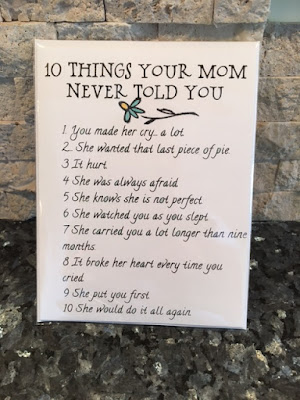 10 THINGS YOUR MOM
NEVER TOLD YOU
1. You made her cry.. a lot
2.. She wanted that last piece of pie.
3 It hurt
4 She was always afraid
5 She knows she is not perfect
6 She watched you as you slept
7 She carried you a lot longer than nine
months
8 It broke her heart every time you
cried
9 She put you first
10 She would do it all again